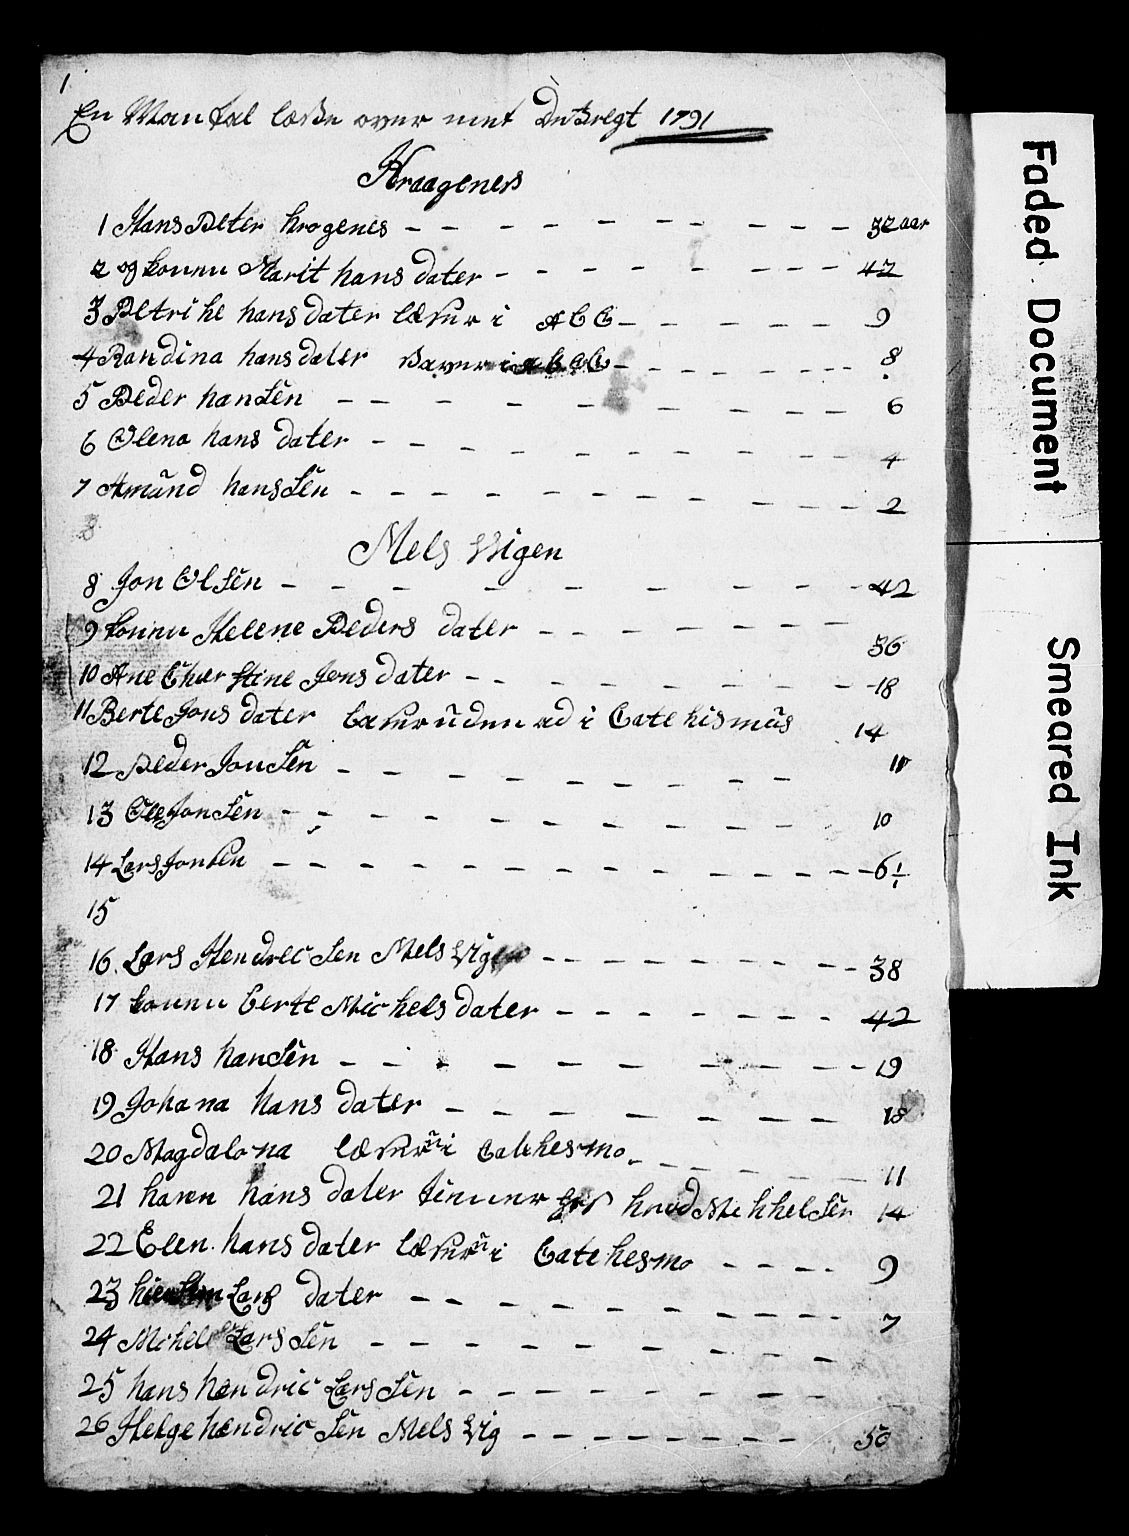 1
En Mantal læse over met 1791
Kraageness
1 Hans Peter krogenes 32 aar
2 og konnu Marit hans dater 42
3 Petrike hans dater læsur i A B C 9
4 Randina hans dater i A B C 8
5 Peder hansSen 6
6 Olena hans dater 4
7 Amünd hans Sen 2
8
Mels Vigen
8 Jon OlSen 42
9 konnu Helene Peders dater 36
10 Ane Cherstine Jons dater 18
11 Berte Jons dater læsur üden ad i Catekismüs 14
12 Peder JonSen 11
13 Ole JonSen 10
14 Lars Jonsen 6
15
16. Lars HendricSen Mels Vigen 38
17 konnu berte Michels dater 42
18 Hans hanSen 19
19 Johana hans dater 18
20 Magdalena læsur i Catehesmo 11
21 karen hans dater tienner hos knud MikkelSen 14
22 Elen hans dater læsur i Catekesmo 9
23 Lars dater 7
24 Mchel Lars Sen
25 hans hendric Lars Sen
26 Helge hendric Sen Mels Vig 50
Faded Document
Smeared Ink